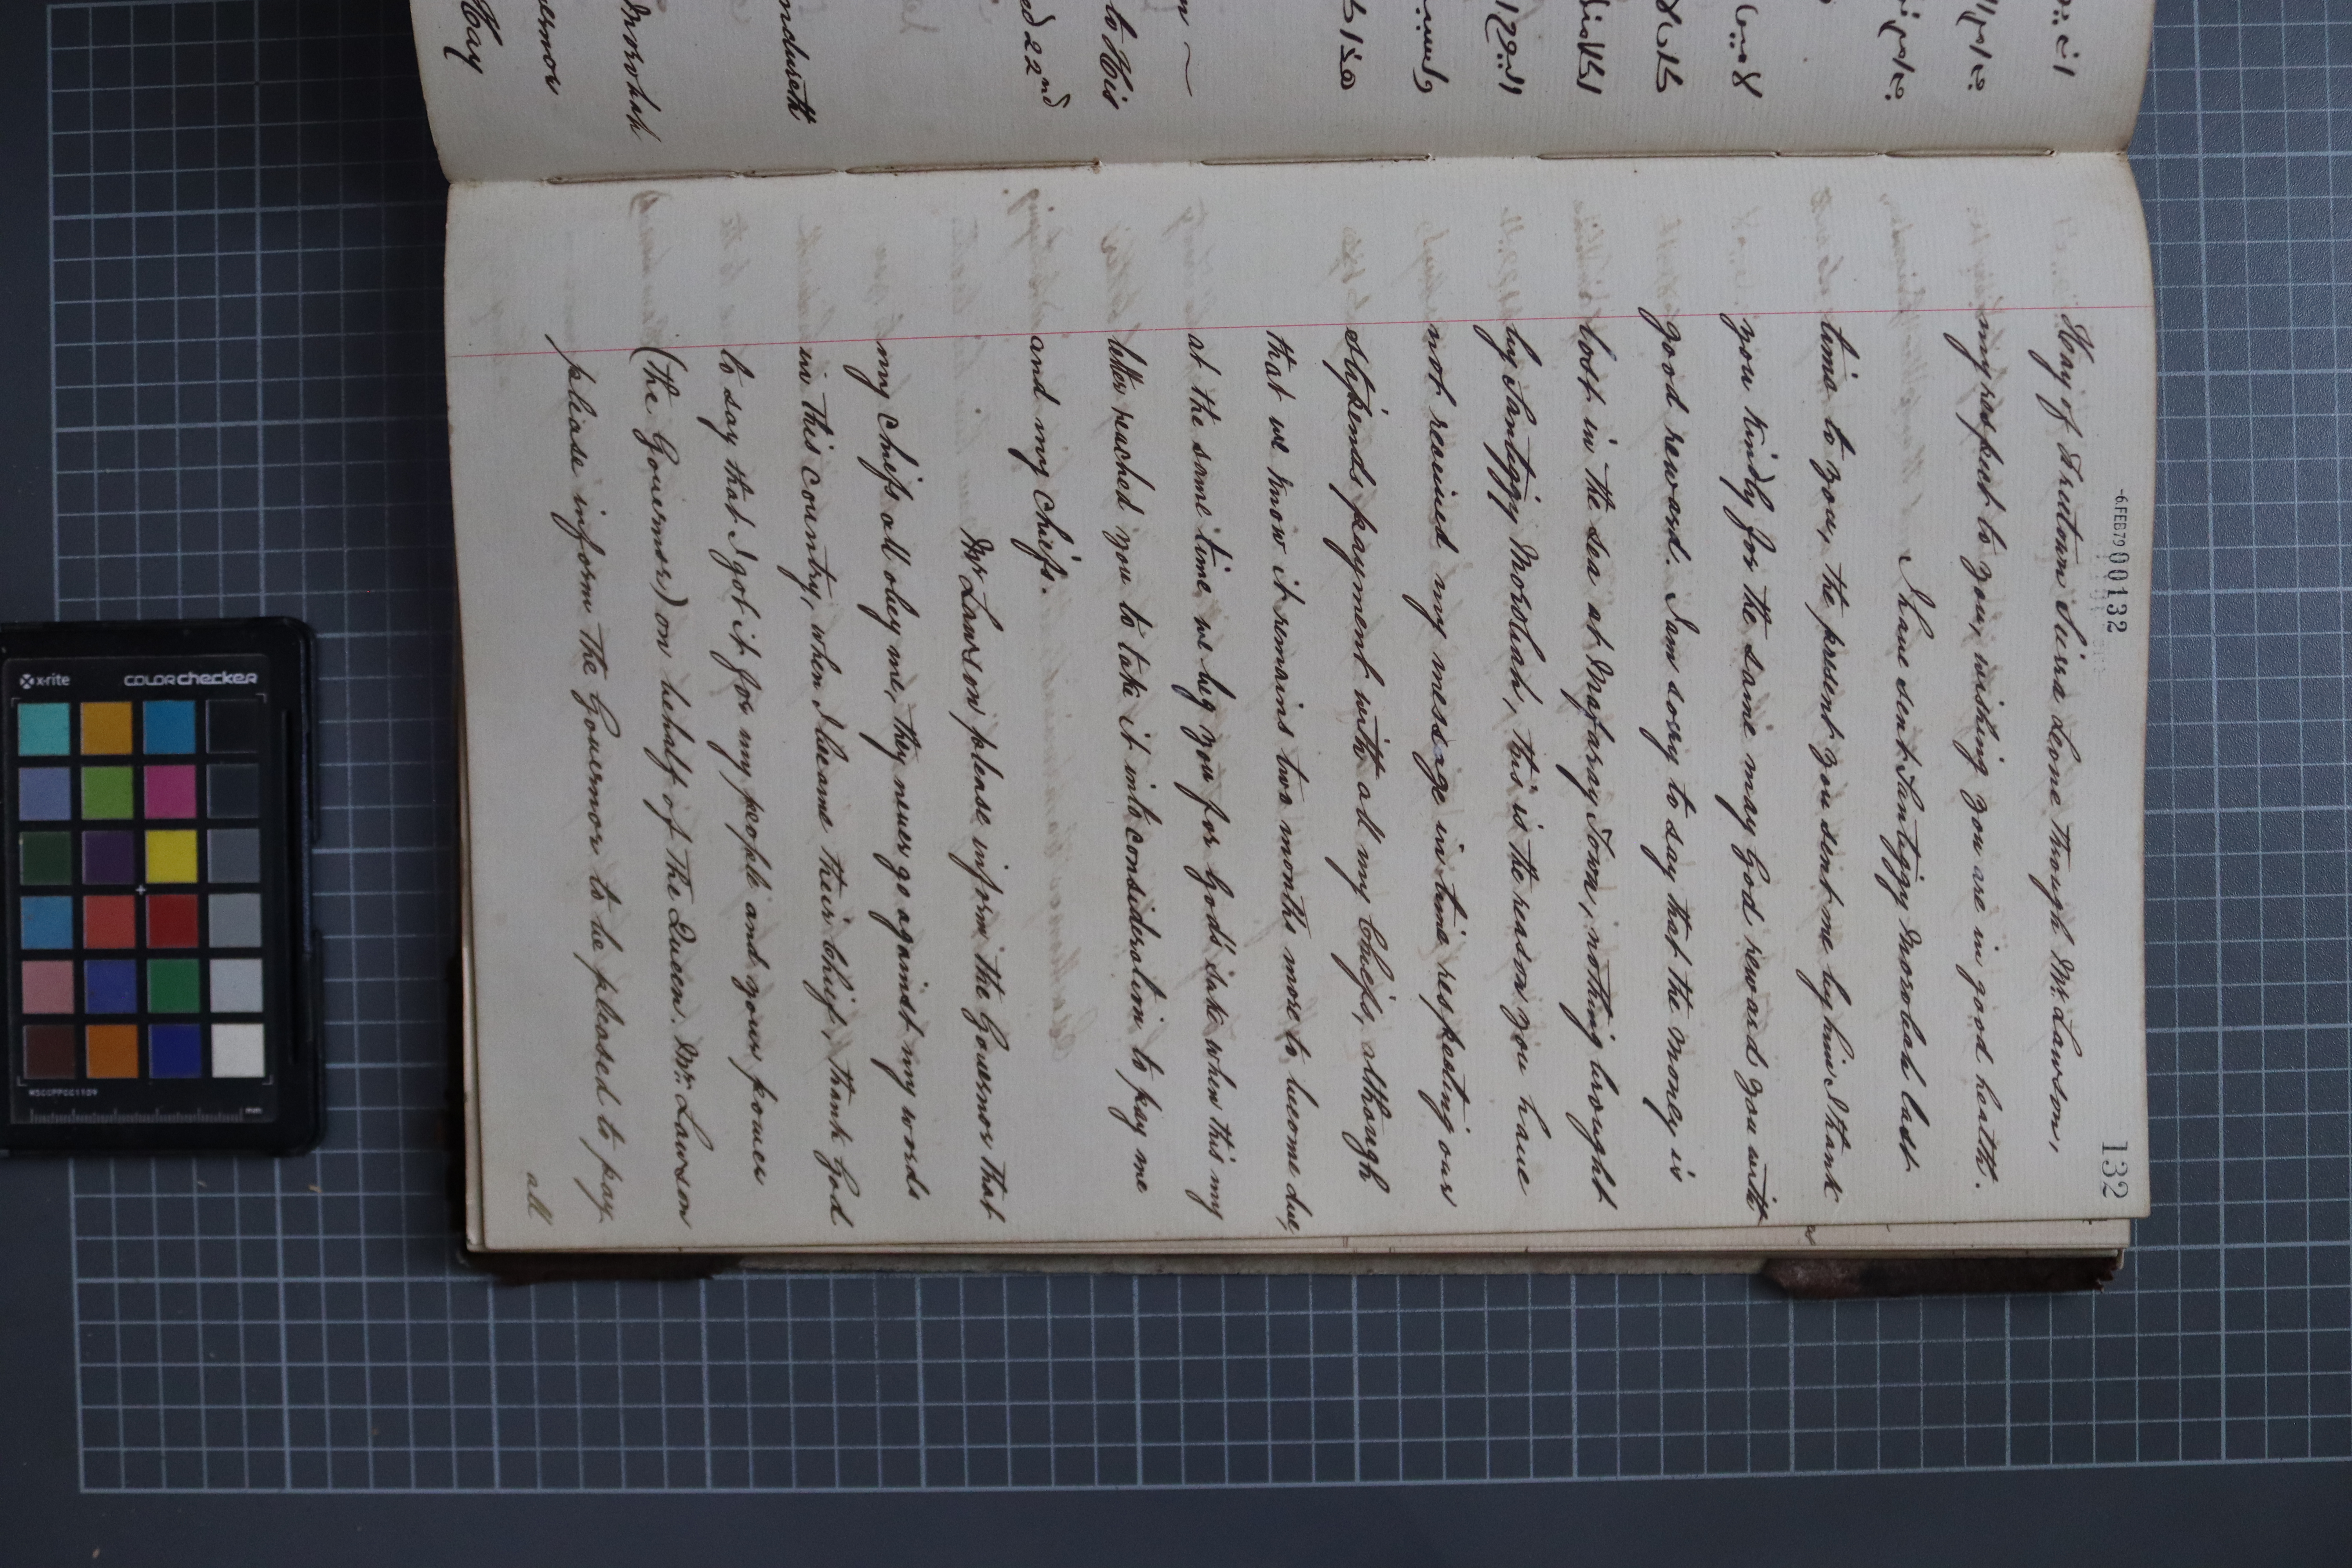 -6FEB79 00132
132
Hay of Freetown Sierra Leone through Mr. Lawson,
my respect to you, wishing you are in good health.
I have sent Santiggy Morobah last
time to you, the present you sent me by him I thank
you kindly for the same may God reward you with
good reward. I am sorry to say that the money is
lost in the sea at Mafaray Town, nothing brought
by Santiggy Morobah, this is the reason you have
not received my message in time respecting our
stipends payment with all my Chiefs, although
that we know it remains two months more to become due,
at the same time, we beg you for God's sake when this my
letter reached you to take it into consideration to pay me
and my Chiefs.
Mr Lawson please inform the Governor that
my Chiefs all obey me, they never go against my words
in this country, when I became their Chief, thank God
to say that I got it for my people and your power
(the Governor) on behalf of the Queen. Mr. Lawson
please inform the Governor to be pleased to pay
all
ndureth
Morobah
ernor
Hay
to His
ed 22nd
x-rite
colorchecker
MSCCPPCC1109
mm